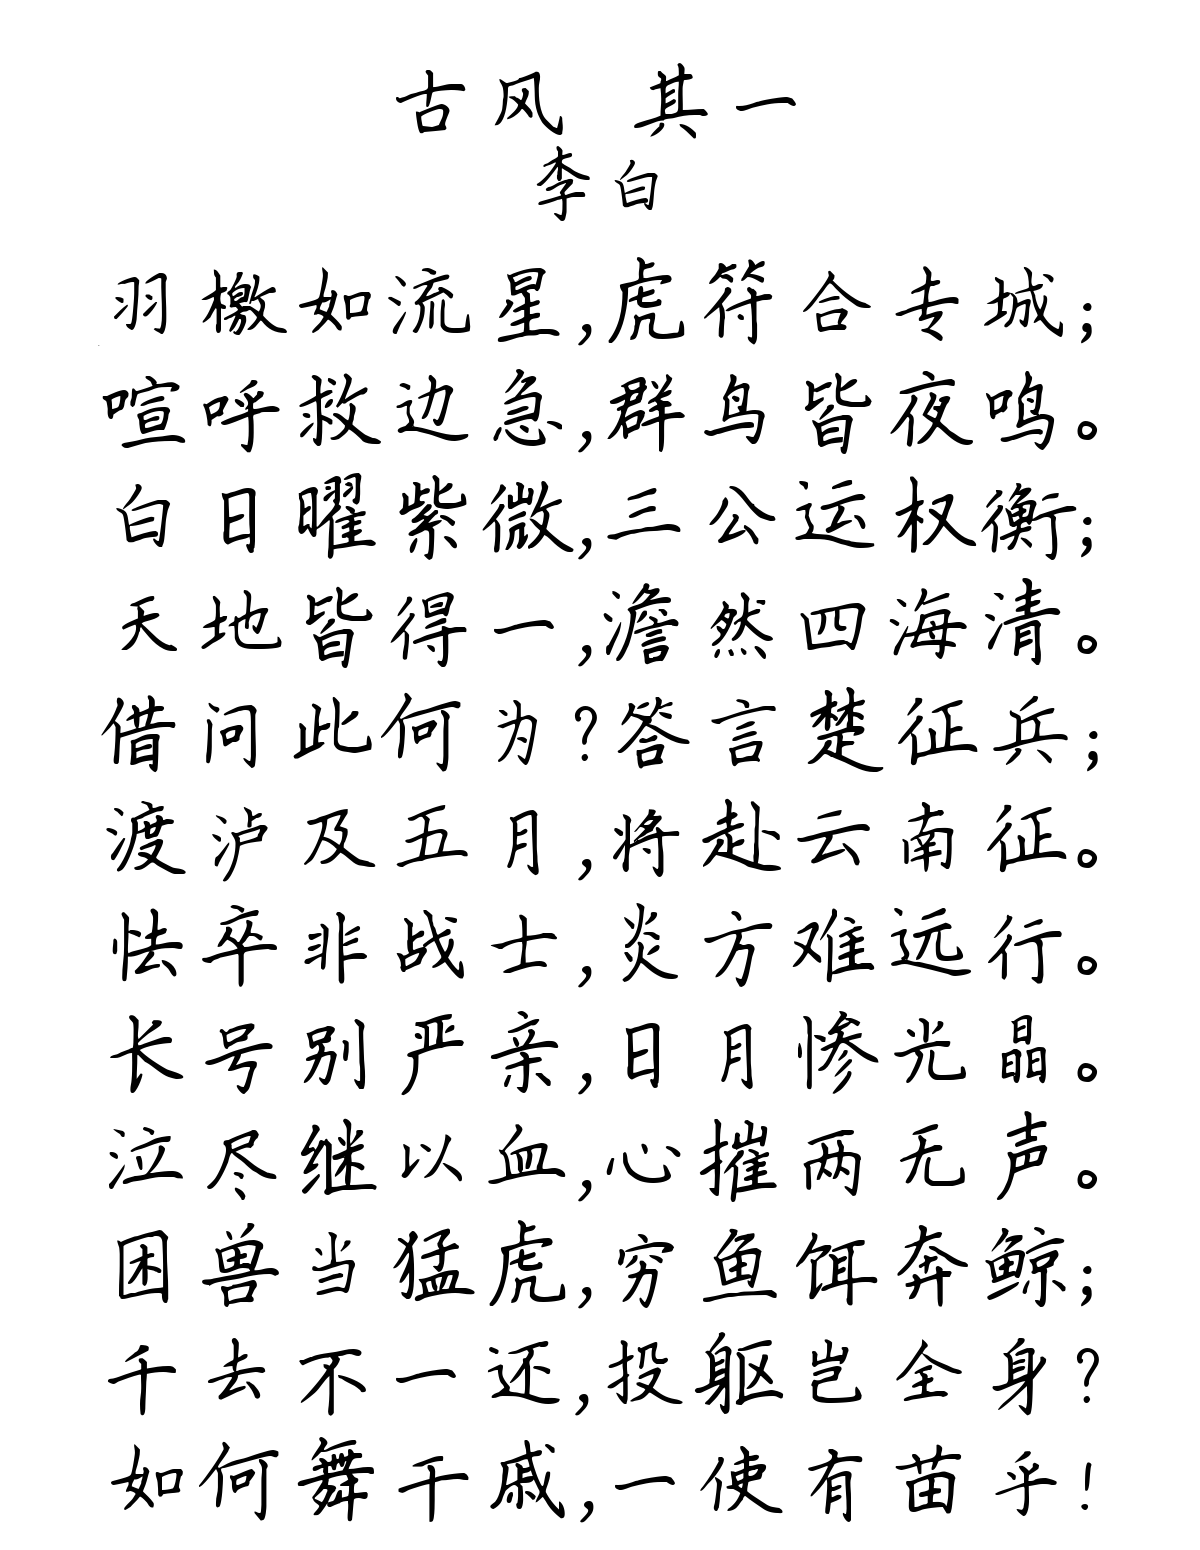 古风 其一
李白
羽檄如流星,虎符合专城;
喧呼救边急,群鸟皆夜鸣。
白日曜紫微,三公运权衡;
天地皆得一,澹然四海清。
借问此何为?答言楚征兵;
渡泸及五月,将赴云南征。
怯卒非战士,炎方难远行。
长号别严亲,日月惨光晶。
泣尽继以血,心摧两无声。
困兽当猛虎,穷鱼饵奔鲸;
千去不一还,投躯岂全身?
如何舞干戚,一使有苗乎!